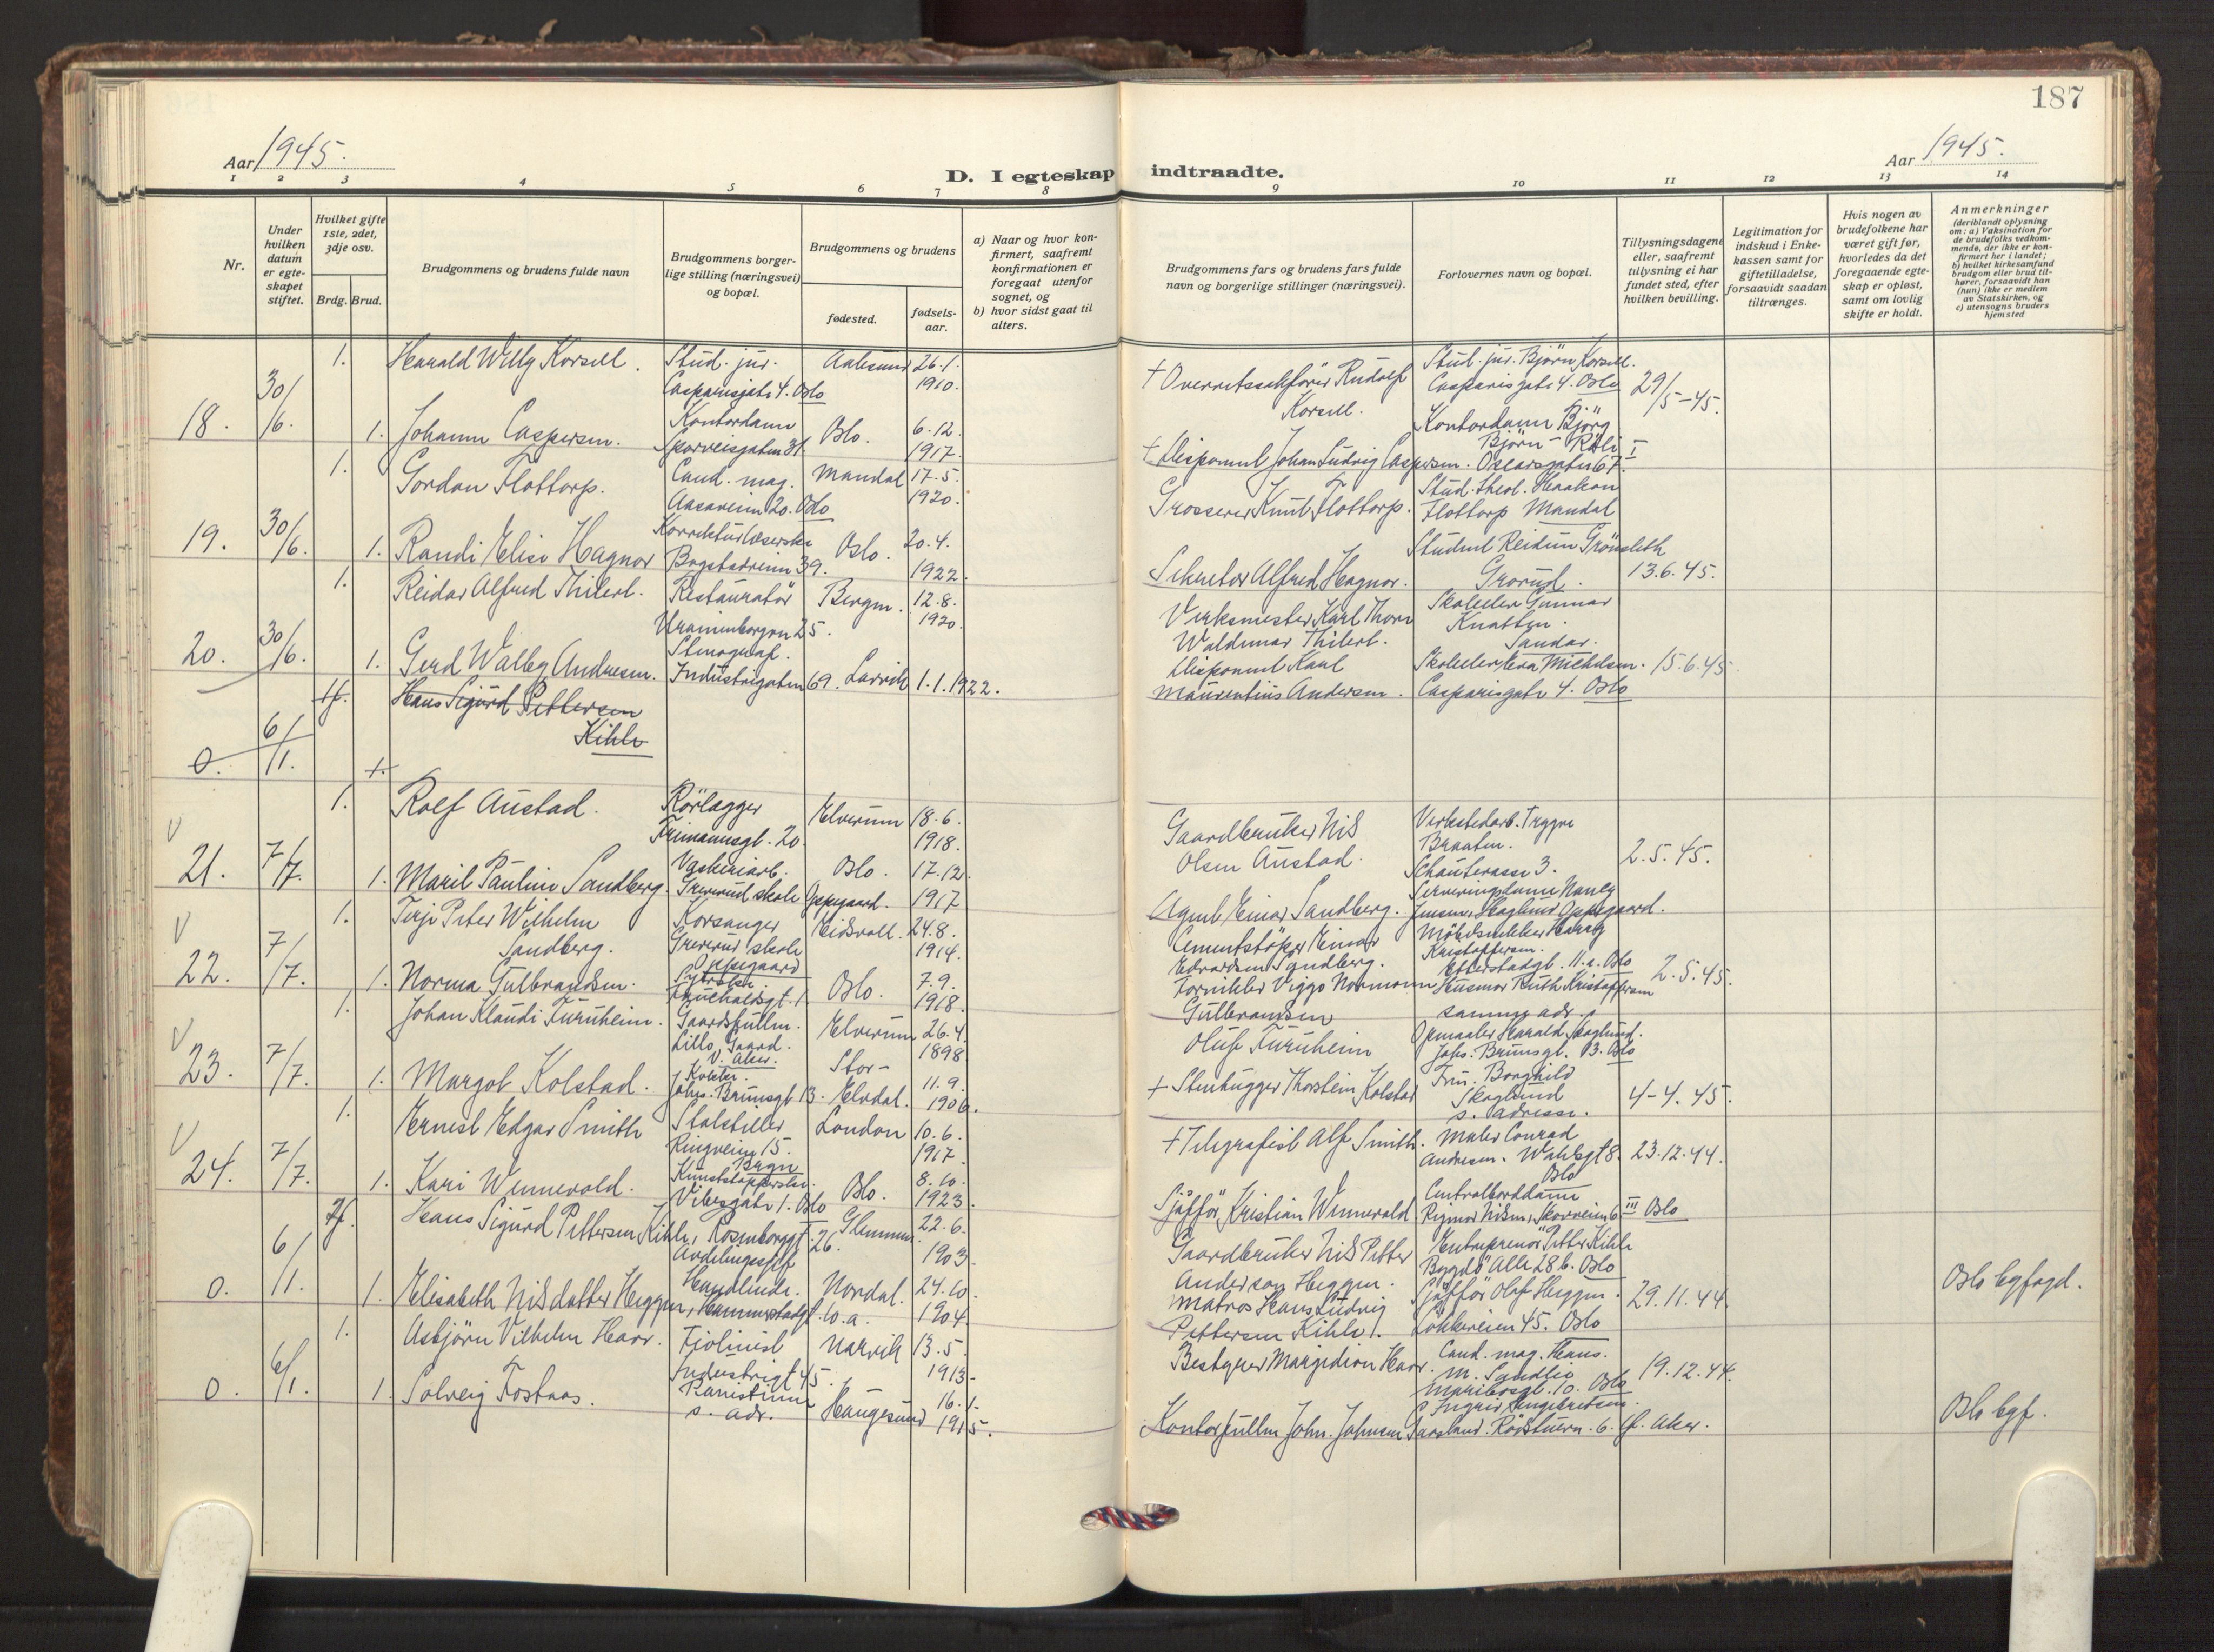 187
Aar 1945.
D. I egteskap indtraadte.
Aar 1945.
1 2 3 4 5 6 7 8 9 10 11 12 13 14
Nr.
Under hvilken datum er egteskapet stiftet.
Hvilket gifte 1ste, 2det, 3dje osv.
Brdg. Brud.
Brudgommens og brudens fulde navn
Brudgommens borgerlige stilling (næringsvei) og bopæl.
Brudgommens og brudens
fødested.
fødselsaar.
a) Naar og hvor konfirmert, saafremt konfirmationen er foregaat utenfor sognet, og
b) hvor sidst gaat til alters.
Brudgommens fars og brudens fars fulde navn og borgerlige stillinger (næringsvei).
Forlovernes navn og bopæl.
Tillysningsdagene eller, saafremt tillysning ei har fundet sted, efter hvilken bevilling.
Legitimation for indskud i Enkekassen samt for giftetilladelse, forsaavidt saadan tiltrænges.
Hvis nogen av brudefolkene har været gift før, hvorledes da det foregaaende egteskap er opløst, samt om lovlig skifte er holdt.
Anmerkninger
(deriblandt oplysning om: a) Vaksination for de brudefolks vedkommende, der ikke er konfirmert her i landet; b) hvilket kirkesamfund brudgom eller brud tilhører, forsaavidt han (hun) ikke er medlem av Statskirken, og c) utensogns bruders hjemsted
18. 30/6. 1. Harald Willy Korsell. Stud. jur. Casparisgate 4. Oslo Aalesund 26.1. 1910. + Overretssakfører Rudolf Korsell. Stud. jur. Björn Korsell. Casparisgate 4. Oslo 29/5-45.
1. Johanne Caspersen. Kontordame Sporveisgaten 31. Oslo. 6.12. 1917. + Disponent Johan Ludvig Caspersen. Kontordame Björg Björn- Oscarsgaten 67.
19. 30/6. 1. Gordon Flottorp. Cand. mag. 20. Oslo Mandal 17.5. 1920. Grosserer Knut Flottorp. Stud. theol. Haakon Flottorp Mandal
1. Randi Elise Hagnor Korrekturleserske Bogstadveien 39. Oslo. 20.4. 1922. Sekretær Alfred Hagnor. Student Reidun Grönseth Grorud. 13.6.45.
20. 30/6. 1. Reidar Alfred Thilert. Restauratör Uranienborgvn 25. Bergen. 12.8. 1920. Verksmester Karl Thore Waldemar Thilert. Skoleelev Gunnar Knatten. Sandar.
1. Gerd Walby Andresen. Stenograf. Industrigaten 69. Larvik 1.1.1922. Disponent Karl Maurentius Andersen. Skoleelev Eva Michelsen. Casparisgate 4. Oslo 15.6.45.
0. 6/1. Hans Sigurd Pettersen Kihle
21. 7/7. 1. Rolf Austad. Rörlegger Frimannsgt. 20 Elverum 18.6. 1918. Gaardbruker Nils Olsen Austad. Verkstedarb. Trygve Braaten. 2.5.45.
1. Marit Pauline Sandberg. Vaskeriarb. Greverud skole Oppegaard. Oslo. 17.12. 1917 Agent Einar Sandberg. Serveringsdame Nancy Oppegaard.
22. 7/7. 1. Terje Peter Wilhelm Sandberg. Korsanger Greverud skole Oppegaard Eidsvoll. 24.8. 1914. Cementstöper Einar Edvardsen Sandberg. Kristoffersen. Etterstadgt. 11.a. Oslo 2.5.45.
1. Norma Gulbrandsen. Oslo. 7.9. 1918. Viggo Normann Gulbransen Husmor Ruth Kristoffersen samme adr.
23. 7/7. 1. Johan Klaudi Furuheim. Gaardsfullm. Lillo Gaard. V. Aker. Elverum 26.4. 1898 Oluf Furuheim Harald Skoglund. Johs. Brunsgt. 13. Oslo
1. Margot Kolstad. Johs. Brunsgt 13. Stor-Elvdal. 11.9. 1906. + Stenhugger Thorstein Kolstad Fru. Borghild Skoglund s. adresse. 4-4.45.
24. 7/7. 1. Ernest Edgar Smith Ringveien 15. Brgn London 10.6. 1917. + Telegrafist Alf Smith. Maler Conrad Andresen. Oslo 23.12.44.
1. Kari Wennevold. Kunststopperske. Vibesgate 1. Oslo Oslo. 8.10. 1923. Sjåfför Kristian Wennevold Centralborddame Rigmor Nilsen, Skovveien 6 III Oslo
0. 6/1. Hans Sigurd Pettersen Kihle, Rosenborggt. 26. Avdelingssjef Glemmen. 22.6. 1903. Gaardbruker Nils Petter Anderson Heggen. Entreprenör Petter Kihle Bygdö Alle 28b. Oslo
1. Elisabeth Nilsdatter Heggen, Hammerstadgt. 10.a. Nordal. 24.10. 1904. Matros Hans Ludvig Pettersen Kihle. Sjåfför Olaf Heggen. Lökkeveien 45. Oslo 29.11.44. Oslo byfogd.
0. 6/1. 1. Asbjörn Vilhelm Haar. Fiolinist Industrigt 45. Narvik 13.5. 1913. Bestyrer Haar. Cand. mag. Hans. M. Sandlie Oslo 19.12.44.
1. Solveig Fostaas. Pianistinne s. adr. Haugesund 16.1. 1915. Kontorfullm. John. Johnsen V. Aker. Oslo byf.